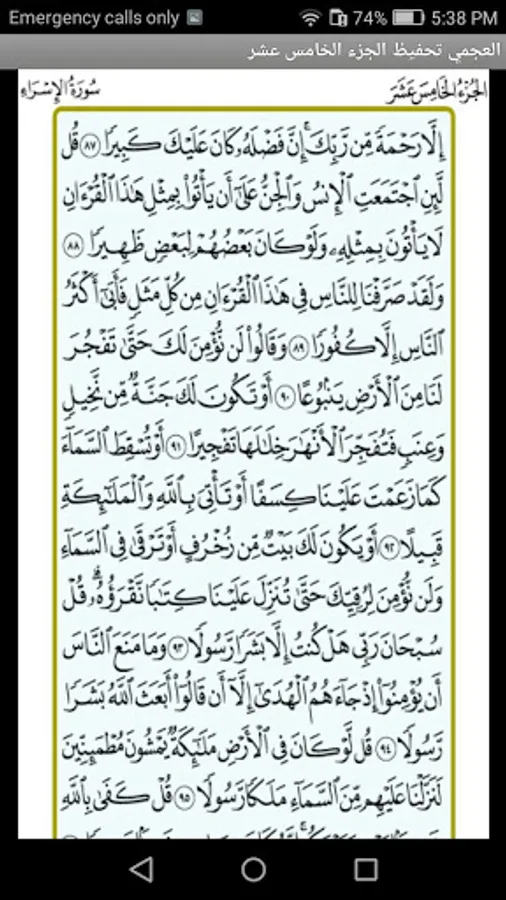 Emergency calls only 74% 5:38 PM
العجمي تحفيظ الجزء الخامس عشر
الجُزْءُ الخَامِسَ عَشَرَ سُورَةُ الإِسْرَاءِ
إِلَّا رَحْمَةً مِّن رَّبِّكَ ۚ إِنَّ فَضْلَهُۥ كَانَ عَلَيْكَ كَبِيرًا ٨٧ قُل
لَّئِنِ ٱجْتَمَعَتِ ٱلْإِنسُ وَٱلْجِنُّ عَلَىٰٓ أَن يَأْتُوا۟ بِمِثْلِ هَٰذَا ٱلْقُرْءَانِ
لَا يَأْتُونَ بِمِثْلِهِۦ وَلَوْ كَانَ بَعْضُهُمْ لِبَعْضٍ ظَهِيرًا ٨٨
وَلَقَدْ صَرَّفْنَا لِلنَّاسِ فِى هَٰذَا ٱلْقُرْءَانِ مِن كُلِّ مَثَلٍ فَأَبَىٰٓ أَكْثَرُ
ٱلنَّاسِ إِلَّا كُفُورًا ٨٩ وَقَالُوا۟ لَن نُّؤْمِنَ لَكَ حَتَّىٰ تَفْجُرَ
لَنَا مِنَ ٱلْأَرْضِ يَنۢبُوعًا ٩٠ أَوْ تَكُونَ لَكَ جَنَّةٌ مِّن نَّخِيلٍ
وَعِنَبٍ فَتُفَجِّرَ ٱلْأَنْهَٰرَ خِلَٰلَهَا تَفْجِيرًا ٩١ أَوْ تُسْقِطَ ٱلسَّمَآءَ
كَمَا زَعَمْتَ عَلَيْنَا كِسَفًا أَوْ تَأْتِىَ بِٱللَّهِ وَٱلْمَلَٰٓئِكَةِ
قَبِيلًا ٩٢ أَوْ يَكُونَ لَكَ بَيْتٌ مِّن زُخْرُفٍ أَوْ تَرْقَىٰ فِى ٱلسَّمَآءِ
وَلَن نُّؤْمِنَ لِرُقِيِّكَ حَتَّىٰ تُنَزِّلَ عَلَيْنَا كِتَٰبًا نَّقْرَؤُهُۥ ۗ قُلْ
سُبْحَانَ رَبِّى هَلْ كُنتُ إِلَّا بَشَرًا رَّسُولًا ٩٣ وَمَا مَنَعَ ٱلنَّاسَ
أَن يُؤْمِنُوٓا۟ إِذْ جَآءَهُمُ ٱلْهُدَىٰٓ إِلَّآ أَن قَالُوٓا۟ أَبَعَثَ ٱللَّهُ بَشَرًا
رَّسُولًا ٩٤ قُل لَّوْ كَانَ فِى ٱلْأَرْضِ مَلَٰٓئِكَةٌ يَمْشُونَ مُطْمَئِنِّينَ
لَنَزَّلْنَا عَلَيْهِم مِّنَ ٱلسَّمَآءِ مَلَكًا رَّسُولًا ٩٥ قُلْ كَفَىٰ بِٱللَّهِ